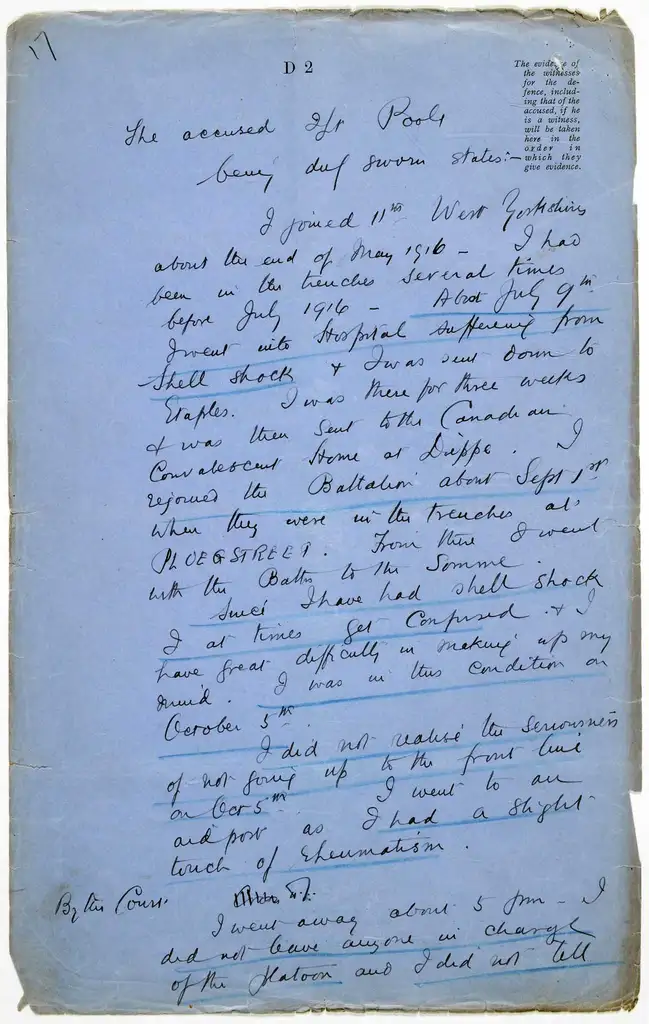 17
D 2
The evidence of
the witnesses
for the de-
fence, includ-
ing that of the
accused, if he
is a witness,
will be taken
here in the
order in
which they
give evidence.
The accused Poole
being duly sworn states:—
I joined 11th West Yorkshires
about the end of May 1916 — I had
been in the trenches several times
before July 1916 — About July 9th
I went into Hospital suffering from
Shell shock & I was sent down to
Etaples. I was there for three weeks
& was then sent to the Canadian
Convalescent Home at Dieppe. I
rejoined the Battalion about Sept 1st
when they were in the trenches at
PLOEGSTREET. From there I went
with the Battn to the Somme.
Since I have had shell shock
I at times get confused & I
have great difficulty in making up my
mind. I was in this condition on
October 5th.
I did not realise the seriousness
of not going up to the front line
on Oct 5th. I went to an
aid post as I had a slight
touch of rheumatism.
By the Court.
I went away about 5 pm — I
did not leave anyone in charge
of the platoon and I did not tell